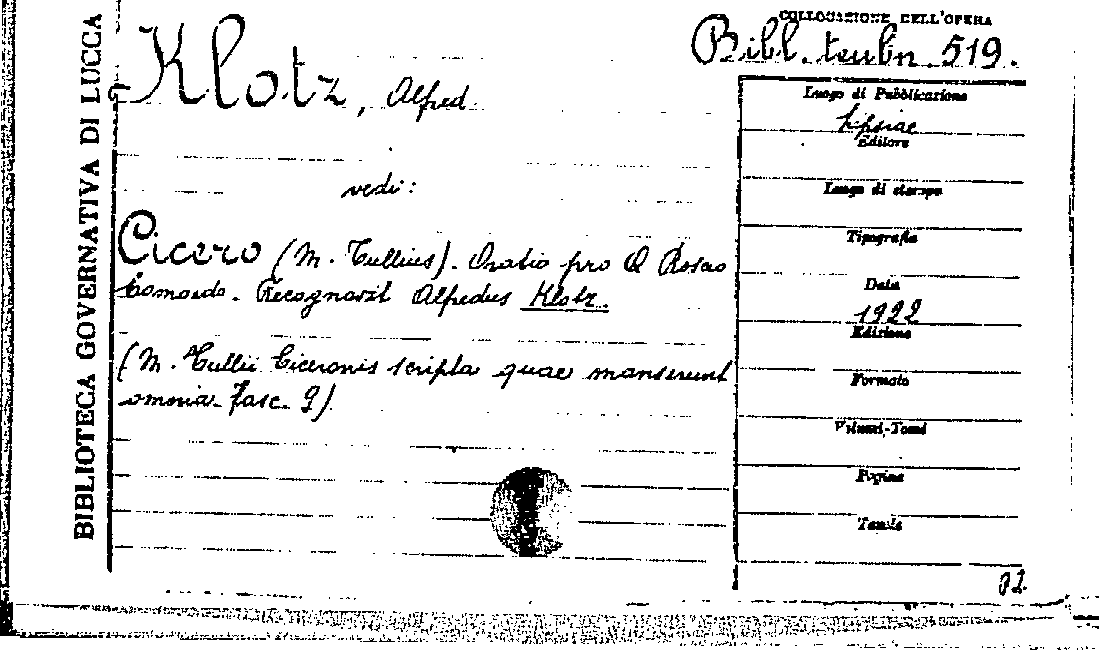 BIBLIOTECA GOVERNATIVA DI LUCCA
Klotz, Alfred
vedi:
Cicero (M. Tullius). Oratio pro Q Roscio
Comoedo. Recognovit Alfredus Klotz.
(M. Tullii Ciceronis scripta quae manserunt
omnia. Fasc. 9)
COLLOCAZIONE DELL'OPERA
Bibl. teubn. 519.
Luogo di Pubblicazione
Lipsiae
Editore
Luogo di stampa
Tipografia
Data
1922
Edizione
Formato
Volumi-Tomi
Pagine
Tavole